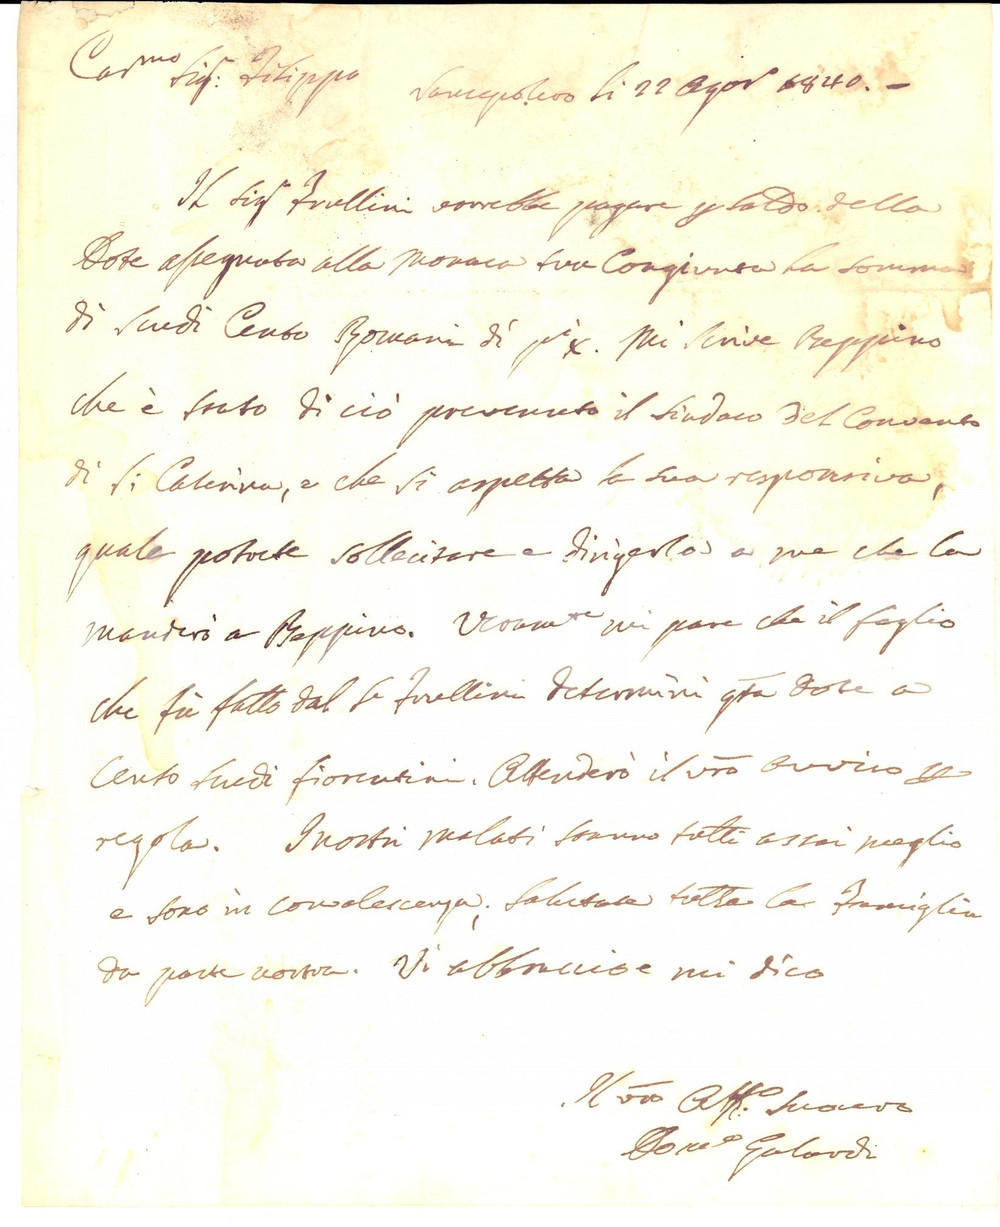 Carmo Sigr. Filippo
Sansepolcro li 22 Agos 1840. –
Il Sigr Ivellini vorrebbe pagare p saldo della
Dote assegnata alla Monaca sua Congiunta la somma
di Scudi Cento Romani di px. Mi scrive Beppino
che è stato di ciò prevenuto il Sindaco del Convento
di S. Caterina, e che si aspetta la sua responsiva,
quale potrete sollecitare e dirigerla a me che la
manderò a Beppino. Veramte mi pare che il foglio
che fù fatto dal Se Ivellini determini qta dote a
Cento Scudi fiorentini. Attenderò il vro avviso p
regola. I nostri malati stanno tutti assai meglio
e sono in convalescenza; salutate tutta la Famiglia
da parte nostra. Vi abbraccio e mi dico
Il vro Affo. Suocero
Domco Galardi